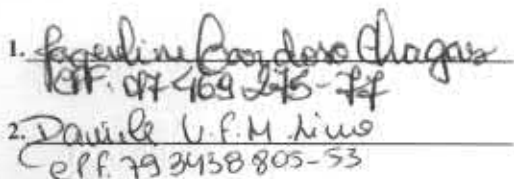 1. Jaqueline Cardoso Chagas
CPF. 017 469 275-77
2. Daniele V.F.M. Lino
CPF. 793438805-53